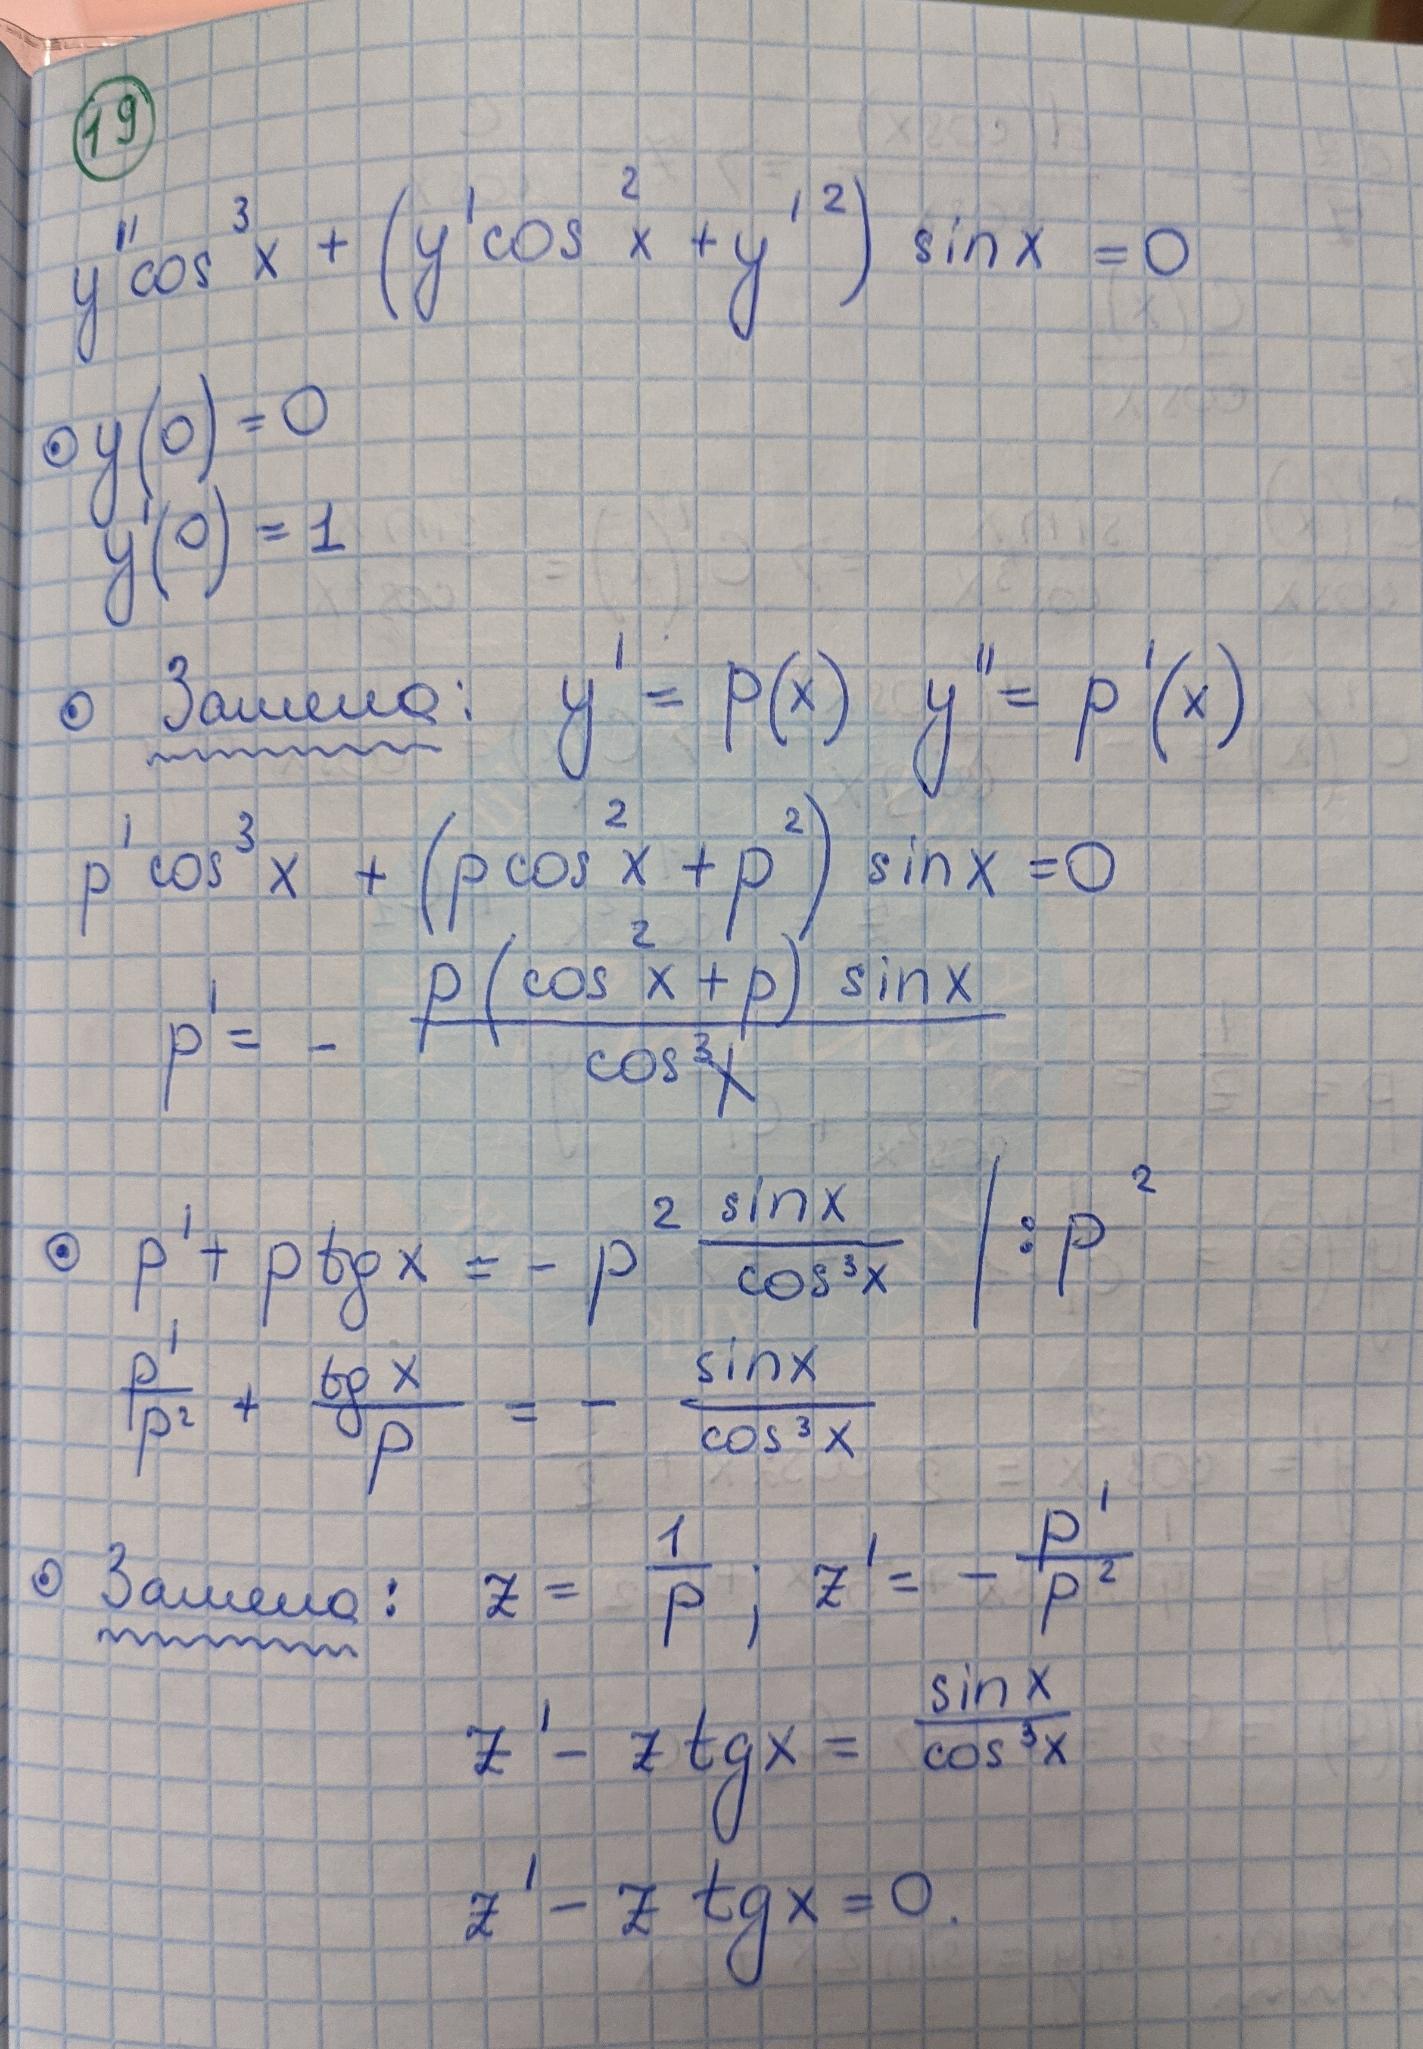 19
y'' cos³x + (y' cos²x + y'²) sin x = 0
y(0) = 0
y'(0) = 1
Замена: y' = p(x) y'' = p'(x)
p' cos³x + (p cos²x + p²) sin x = 0
p' = - p(cos²x + p) sin x / cos³x
p' + p tg x = - p² sin x / cos³x | : p²
p'/p² + tg x / p = - sin x / cos³x
Замена: z = 1/p ; z' = - p'/p²
z' - z tg x = sin x / cos³x
z' - z tg x = 0.